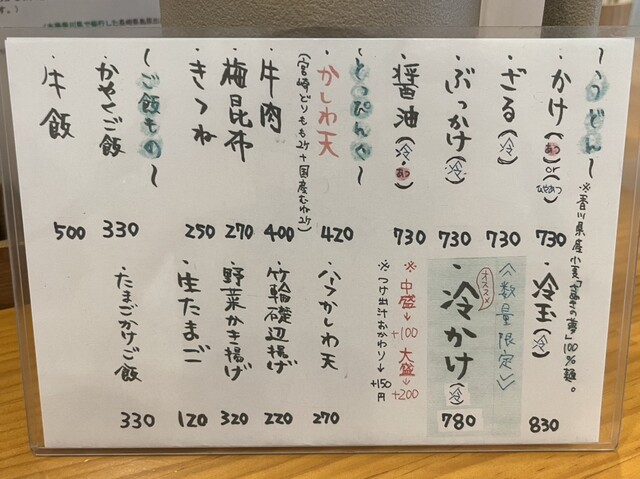 〜うどん〜
・かけ(あつ)or(ひやあつ) 730
・ざる(冷) 730
・ぶっかけ(冷) 730
・醤油(冷・あつ) 730
※香川県産小麦「さぬきの夢」100%麺。
・冷玉(冷) 830
〈数量限定〉
オススメ
・冷かけ(冷) 780
※中盛→+100 大盛→+200
※つけ出汁おかわり→+150円
〜とっぴんぐ〜
・かしわ天 420
(宮崎どりもも2ケ+国産むね2ケ)
・牛肉 400
・梅昆布 270
・きつね 250
・ハーフかしわ天 270
・竹輪磯辺揚げ 220
・野菜かき揚げ 320
・生たまご 120
〜ご飯もの〜
・かやくご飯 330
・牛飯 500
・たまごかけご飯 330